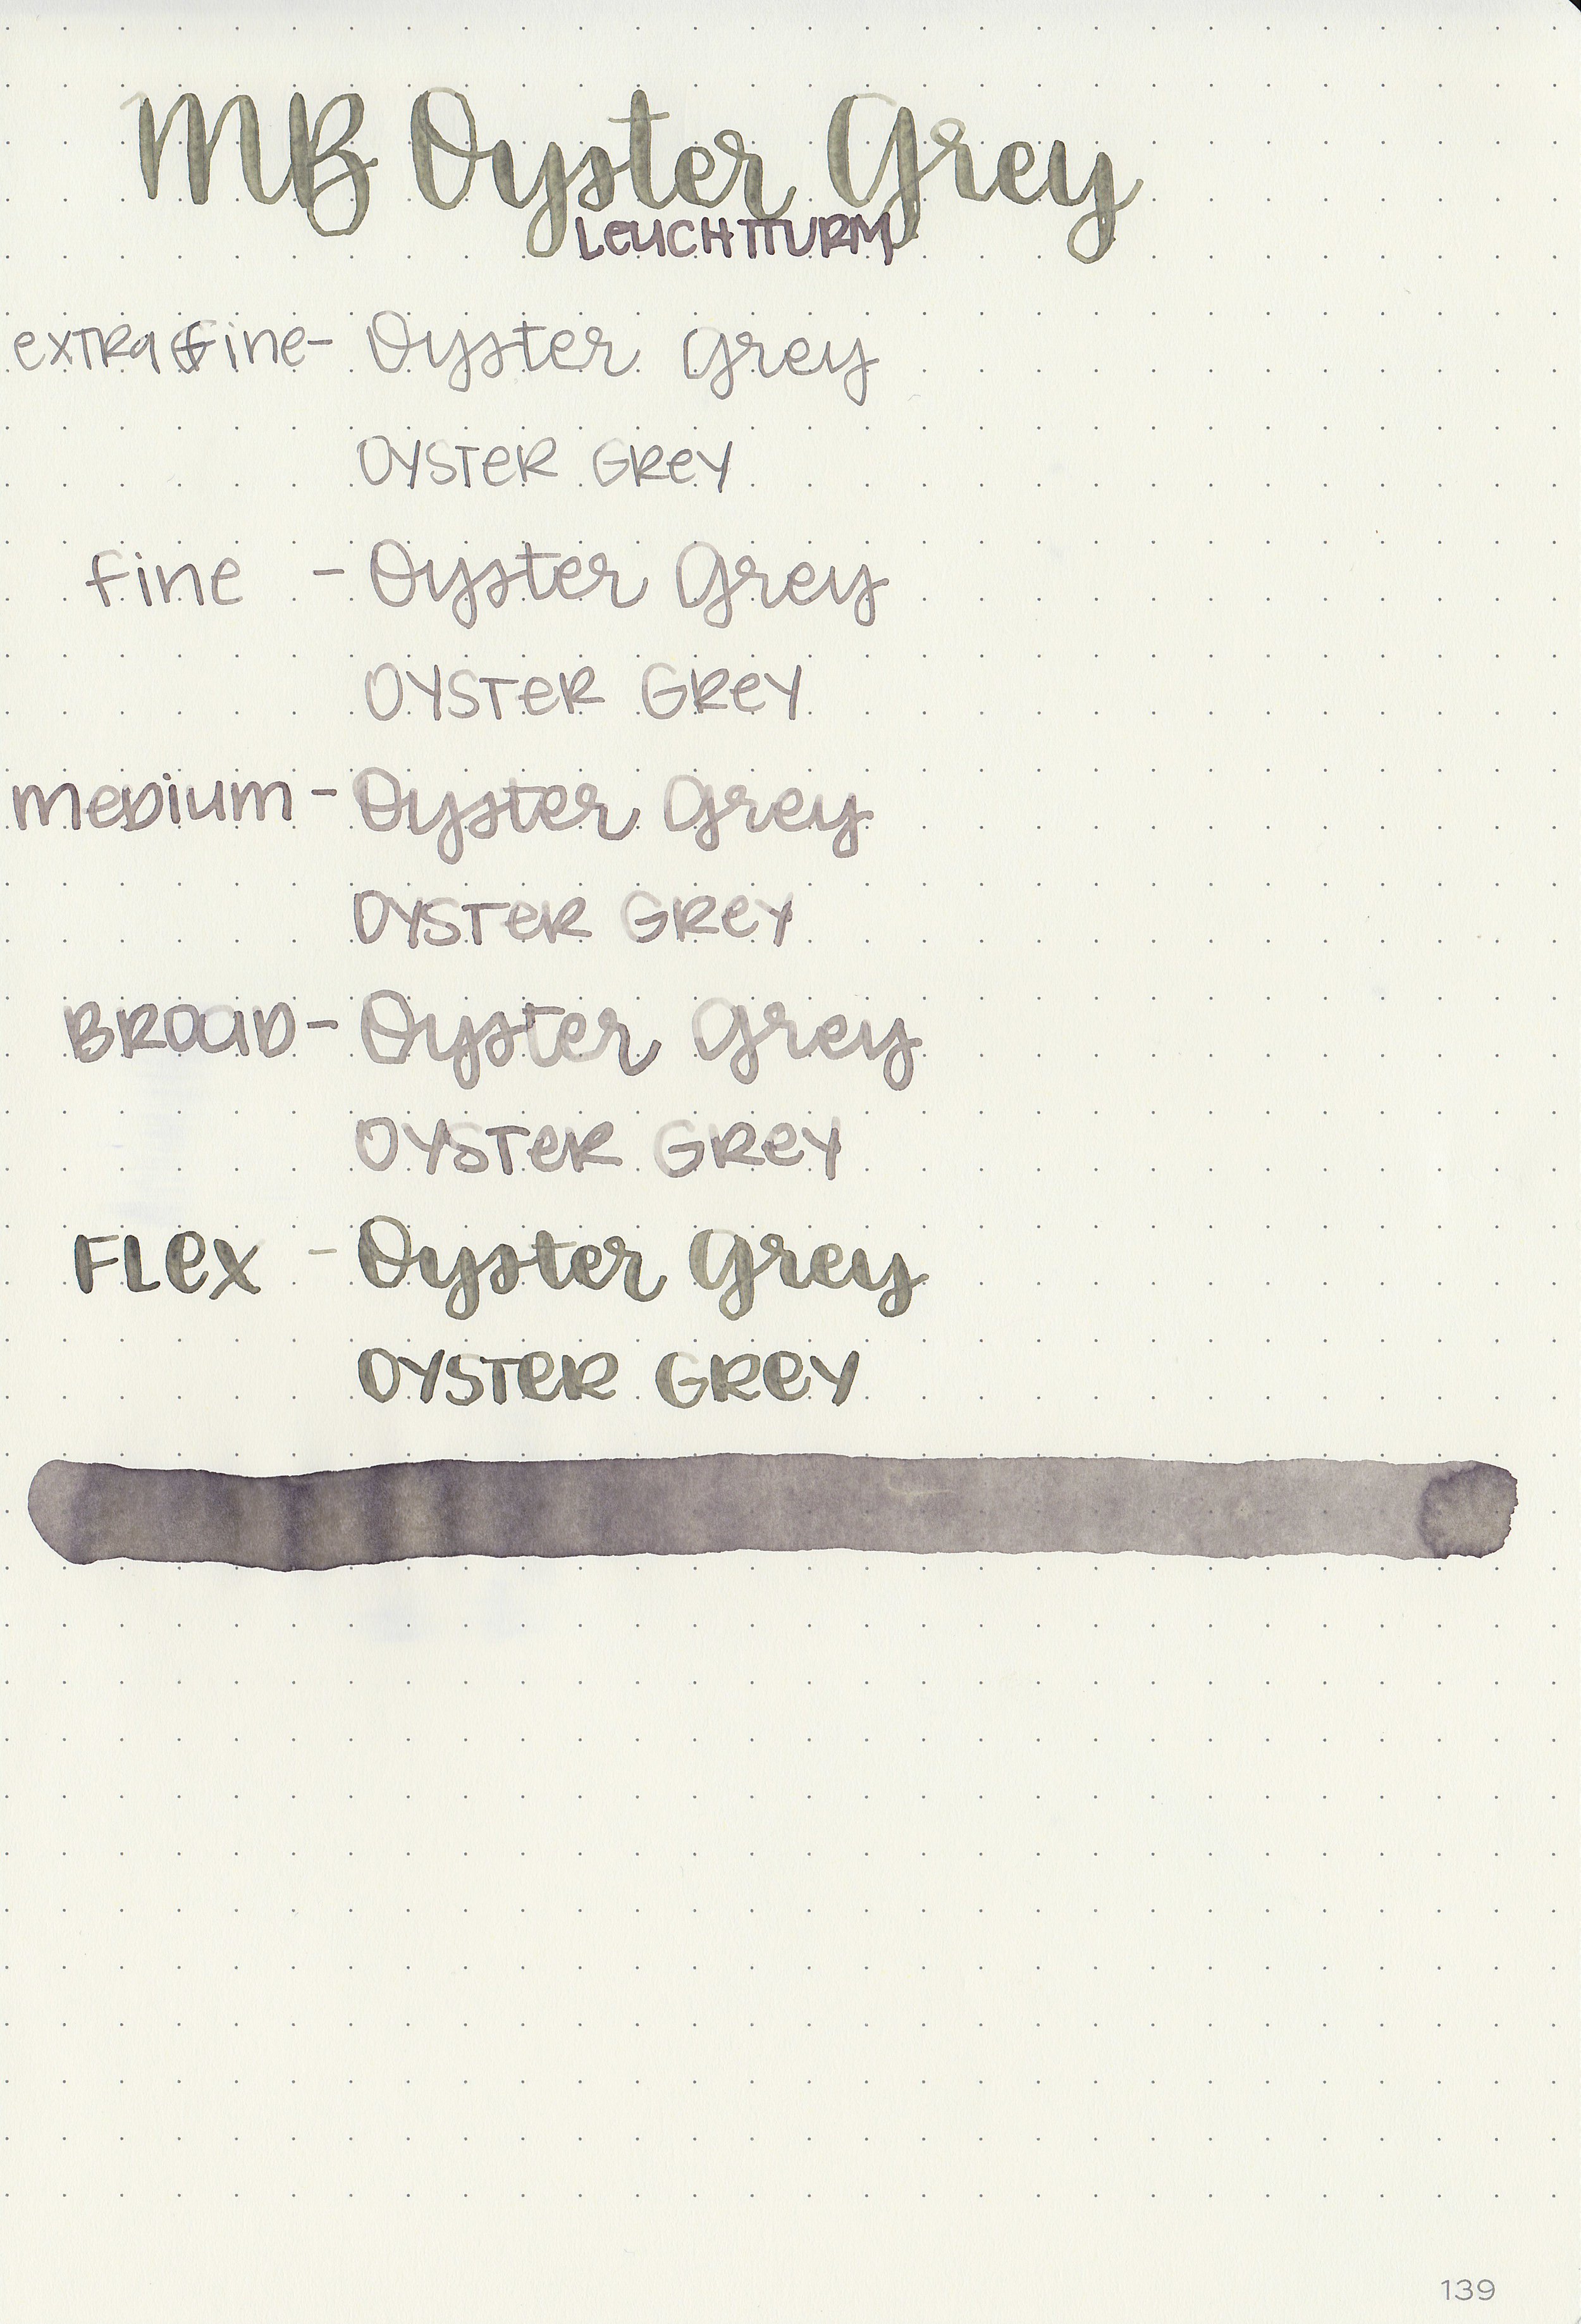 MB Oyster Grey
LEUCHTTURM
extra fine - Oyster Grey
OYSTER GREY
fine - Oyster Grey
OYSTER GREY
medium - Oyster Grey
OYSTER GREY
BROAD - Oyster Grey
OYSTER GREY
FLex - Oyster Grey
OYSTER GREY
139